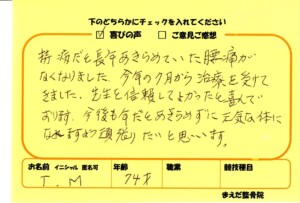 下のどちらかにチェックを入れてください
☑ 喜びの声 □ ご意見ご感想
持病だと長年あきらめていた腰痛が
なくなりました。今年の7月から治療を受けて
きました。先生を信頼してよかったと喜んで
おります。今後も年だとあきらめずに正常な体に
なれますよう頑張りたいと思います。
お名前 イニシャル 匿名可 年齢 職業 競技種目
T.M 74才
まえだ整骨院